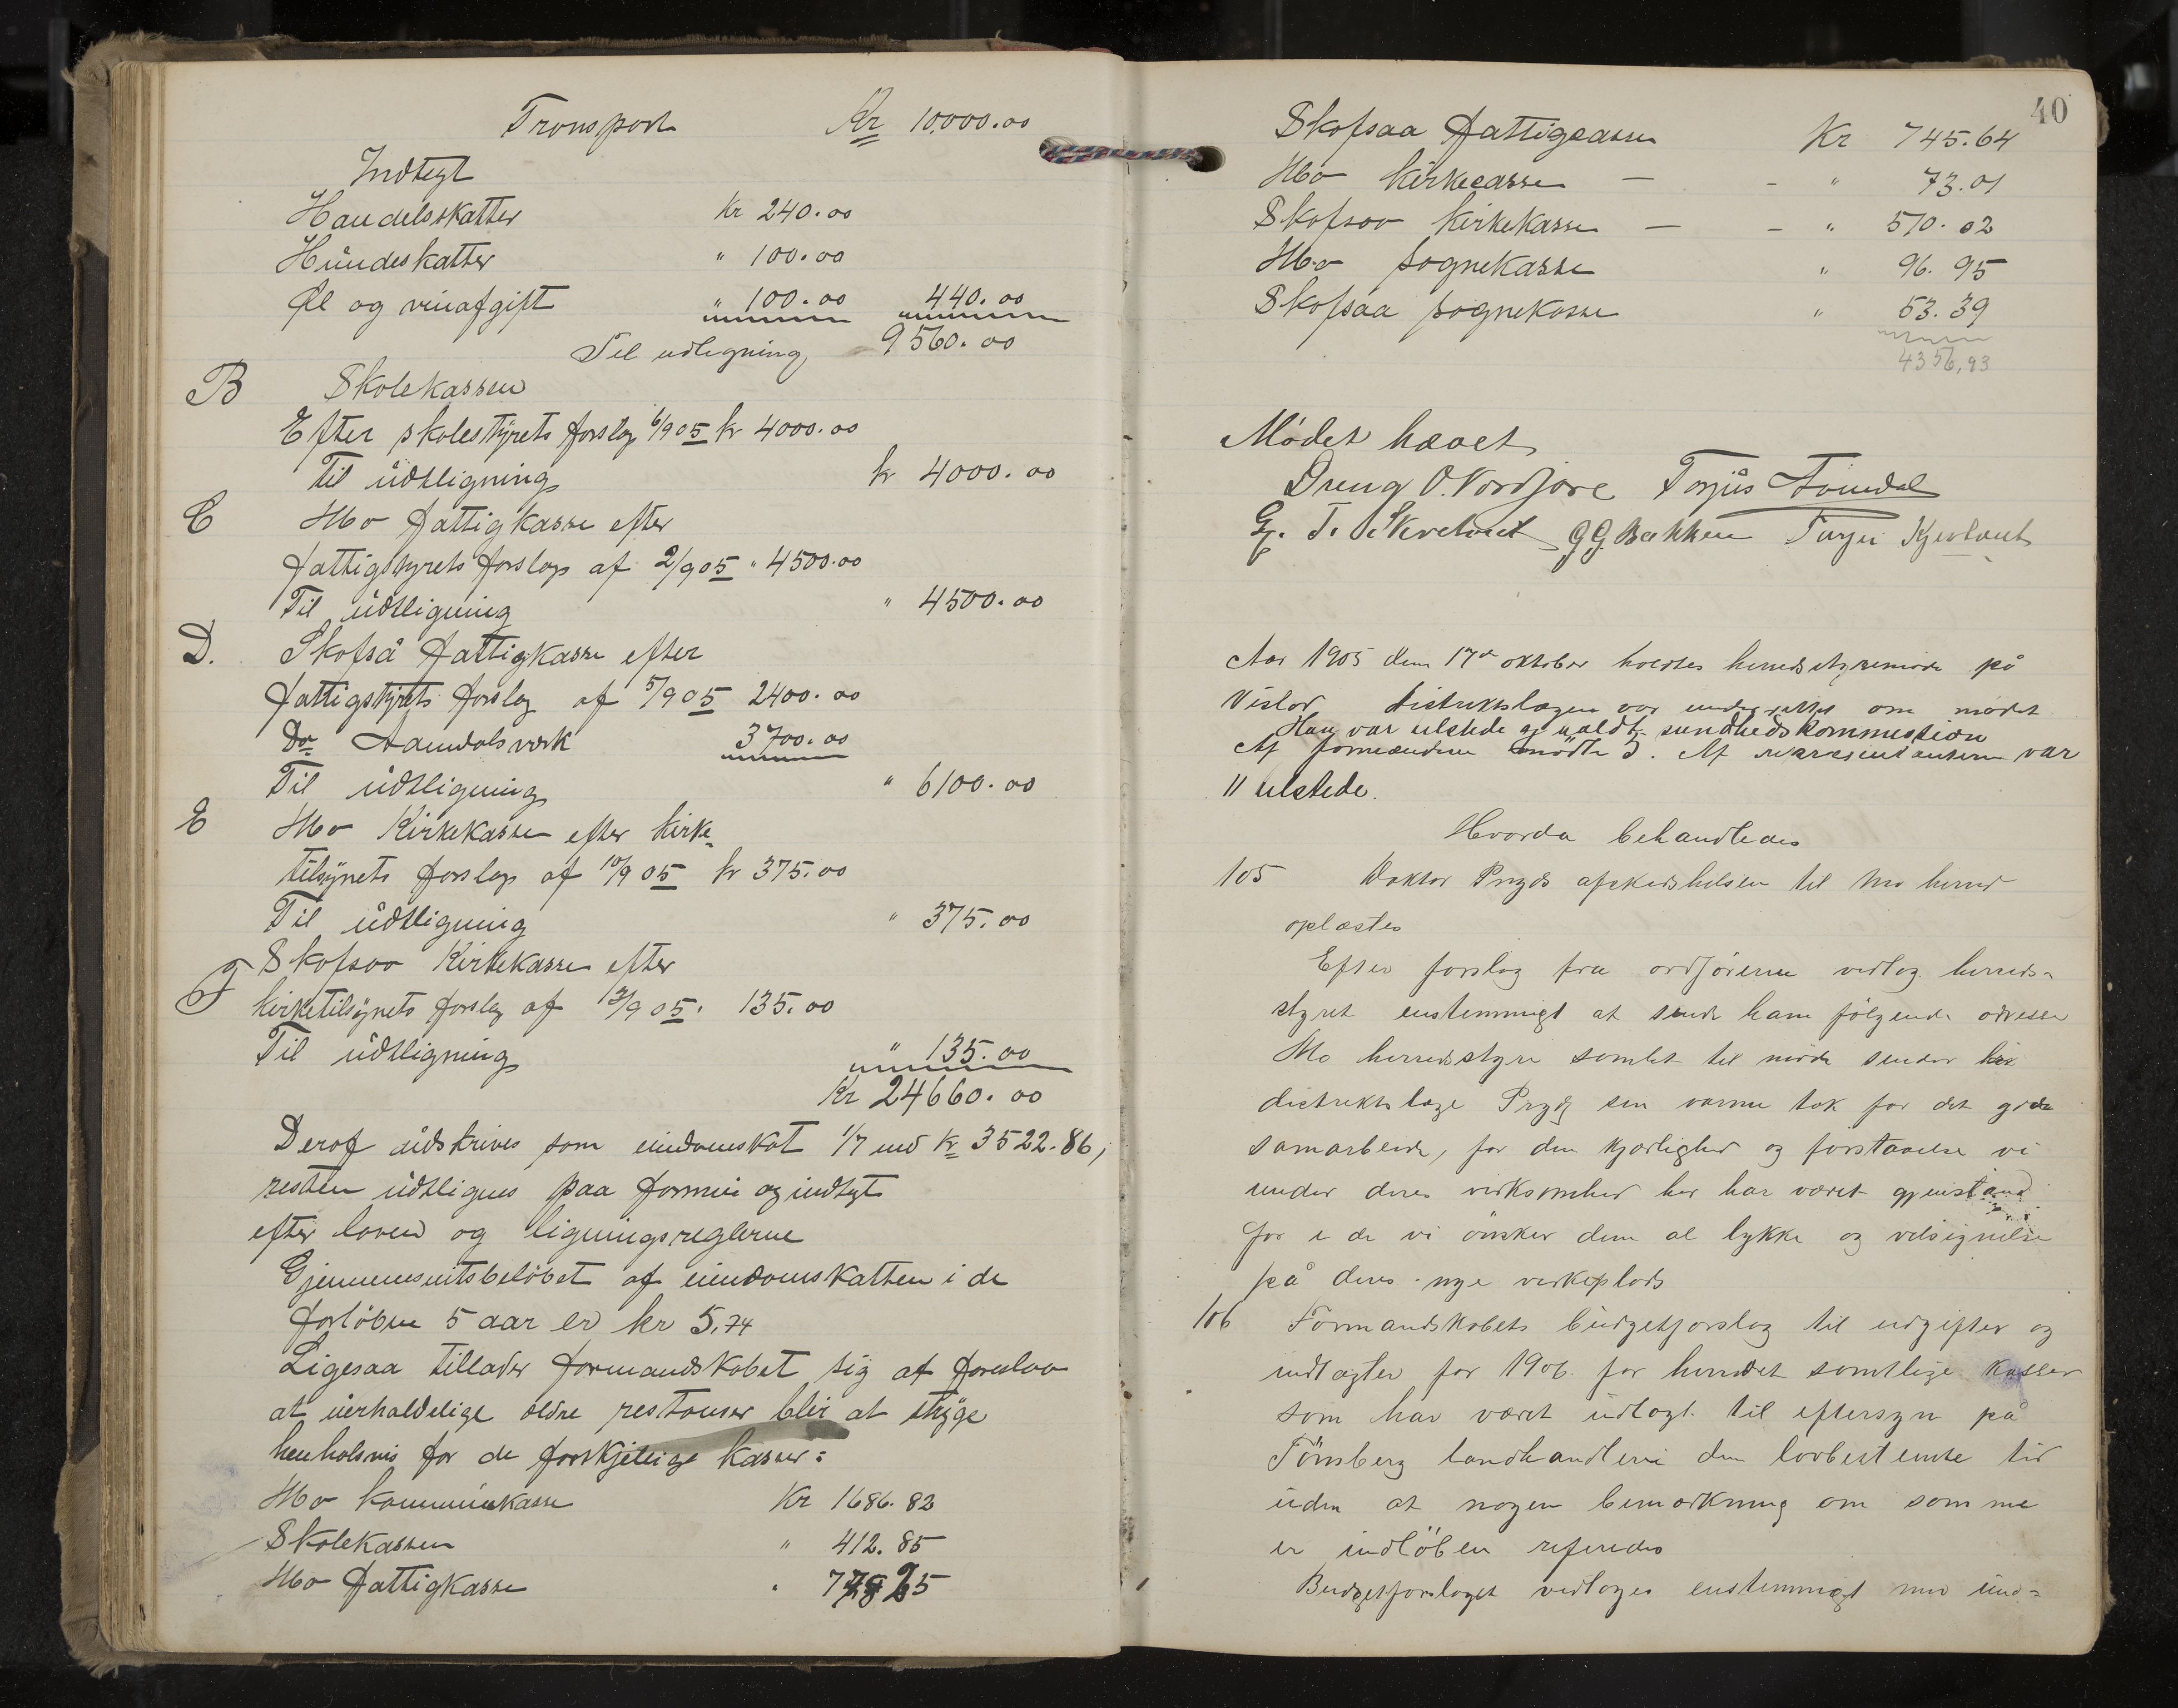 Transport Kr 10,000.00
Indtegt
Handelsskatter Kr 240.00
Hundeskatter " 100.00
Øl og vinafgift " 100.00 440.00
Til udligning 9560.00
B Skolekassen
Efter skolestyrets forslag 6/9 05 kr 4000.00
Til udtligning kr 4000.00
C Mo fattigkasse efter
fattigstyrets forslag af 2/9 05 " 4500.00
Til udtligning " 4500.00
D. Skofså fattigkasse efter
fattigstyrets forslag af 5/9 05 2400.00
Do Aamdalsverk 3700.00
Til udtligning " 6100.00
E Mo Kirkekasse efter kirke-
tilsynets forslag af 10/9 05 kr 375.00
Til udtligning " 375.00
F Skofsaa Kirkekasse efter
kirketilsynets forslag af 12/9 05. 135.00
Til udtligning " 135.00
Kr 24660.00
Deraf udskrives som eiendomskat 1/7 med Kr 3522.86,
resten udtlignes paa formue og indtegt
efter loven og ligningsreglerne
Gjennemsnitsbeløbet af eiendomskatten i de
forløbne 5 aar er kr 5,74
Ligesaa tillader formandskabet sig at foreslaa
at uerholdelige ældre restanser blir at stryge
henholsvis for de forskjelige kasser:
Mo kommunekasse Kr 1686.82
Skolekassen " 412.85
Mo Fattigkasse "
40
Skofsaa fattigcasse Kr 745.64
Mo kirkecasse — - " 73.01
Skofsaa kirkekasse — - " 570.02
Mo sognekasse " 96.95
Skofsaa sognekasse " 53.39
4356,93
Mødet hævet
Dreng O. Nordjore Torjus
G. T. Skretveit G G Bakken
Aar 1905 den 17de oktober holdtes herredsstyremøde på
Vistad distriktslægen var underrettet om mødet
Han var tilstede og valdt sundhedskommission
Af formændene mødte 3. Af repræsentanterne var
11 tilstede.
Hvorda behandledes
105 Doktor Pryds afskedshilsen til Mo herred
oplæstes
Efter forslag fra ordføreren vedtog herreds-
styret enstemmigt at sende ham følgende adresse
Mo herredsstyre samlet til møde sender hr
distriktslæge Pryds sin varme tak for det gode
samarbeide, for den kjærlighed og forstaaelse vi
under deres virksomhed her har været gjenstand
for i de vi ønsker dem al lykke og velsignelse
på deres nye virkeplads
106 Formandskabets budgetforslag til udgifter og
indtægter for 1906 for herredet samtlige kasser
som har været udlagt til eftersyn på
Tönsberg landhandleri den lovbestemte tid
uden at nogen bemærkning om samme
er indløben referedes
Budgetforslaget vedtoges enstemmigt med und=